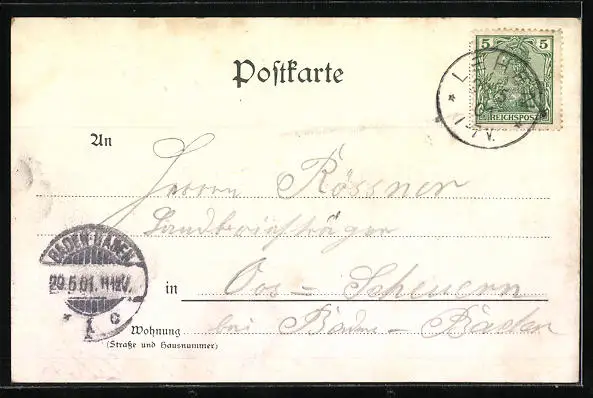 Postkarte
5 5
REICHSPOST
1-7V.
An
Herrn Rössner
Landbriefträger
BADEN-BADEN
29.5.01. 11-12V.
* 1 c
in Oos - Scheuern
Wohnung bei Baden - Baden
(Straße und Hausnummer)